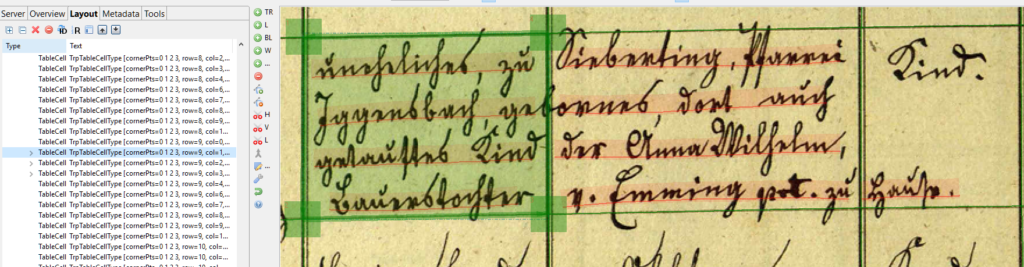 Server Overview Layout Metadata Tools
Type Text
TableCell TrpTableCellType [cornerPts=0 1 2 3, row=8, col=2,...
TableCell TrpTableCellType [cornerPts=0 1 2 3, row=8, col=3,...
TableCell TrpTableCellType [cornerPts=0 1 2 3, row=8, col=4,...
TableCell TrpTableCellType [cornerPts=0 1 2 3, row=8, col=6,...
TableCell TrpTableCellType [cornerPts=0 1 2 3, row=8, col=7,...
TableCell TrpTableCellType [cornerPts=0 1 2 3, row=8, col=8,...
TableCell TrpTableCellType [cornerPts=0 1 2 3, row=8, col=9,...
TableCell TrpTableCellType [cornerPts=0 1 2 3, row=8, col=1...
TableCell TrpTableCellType [cornerPts=0 1 2 3, row=9, col=0,...
TableCell TrpTableCellType [cornerPts=0 1 2 3, row=9, col=1,...
TableCell TrpTableCellType [cornerPts=0 1 2 3, row=9, col=2,...
TableCell TrpTableCellType [cornerPts=0 1 2 3, row=9, col=3,...
TableCell TrpTableCellType [cornerPts=0 1 2 3, row=9, col=4,...
TableCell TrpTableCellType [cornerPts=0 1 2 3, row=9, col=6,...
TableCell TrpTableCellType [cornerPts=0 1 2 3, row=9, col=7,...
TableCell TrpTableCellType [cornerPts=0 1 2 3, row=9, col=8,...
TableCell TrpTableCellType [cornerPts=0 1 2 3, row=9, col=9,...
TableCell TrpTableCellType [cornerPts=0 1 2 3, row=9, col=1...
TableCell TrpTableCellType [cornerPts=0 1 2 3, row=10, col=...
TableCell TrpTableCellType [cornerPts=0 1 2 3, row=10, col=...
TR
L
BL
W
...
H
V
L
...
uneheliches, zu Sieberting, Pfarrei Kind.
Iggensbach, gebornes, dort auch
getauftes Kind der Anna Wilhelm,
Bauerstochter v. Emming prt. zu Hause.